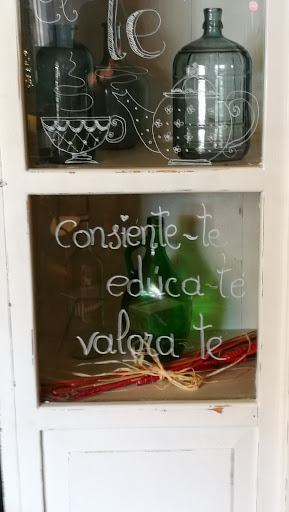 el te
Consiente-te
edúca-te
valora-te